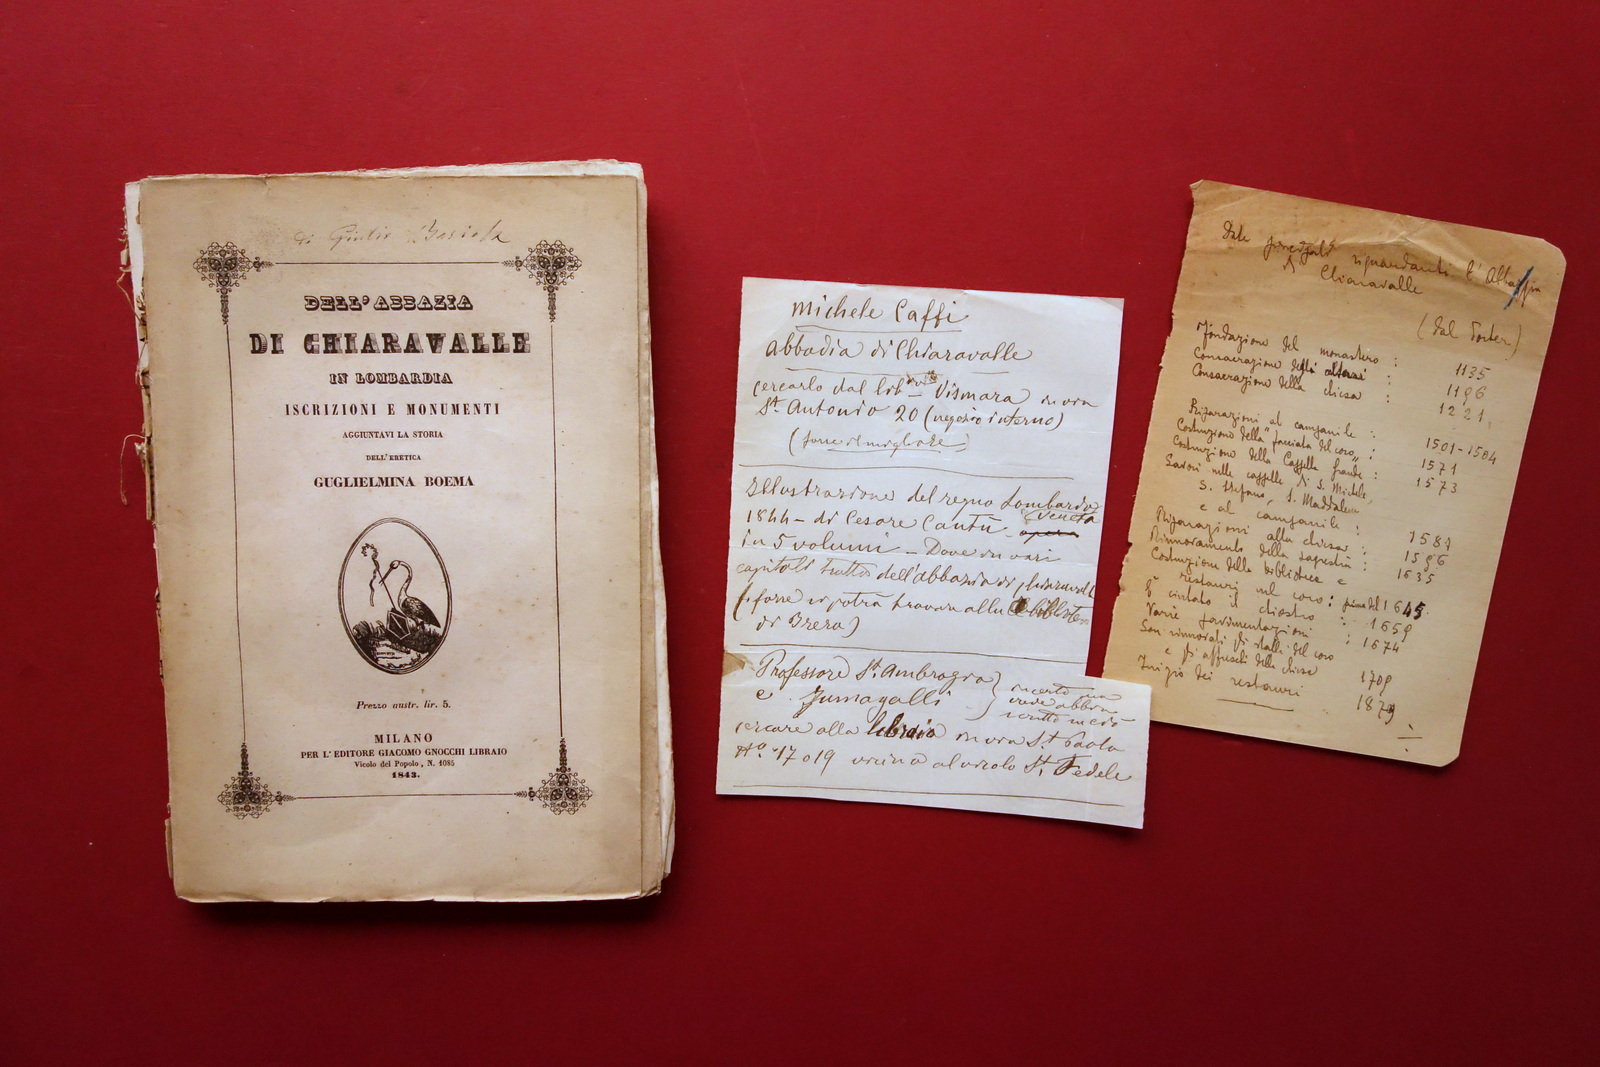 di Giulio
DELL'ABBAZIA
DI CHIARAVALLE
IN LOMBARDIA
ISCRIZIONI E MONUMENTI
AGGIUNTAVI LA STORIA
DELL'ERETICA
GUGLIELMINA BOEMA
Prezzo austr. lir. 5.
MILANO
PER L'EDITORE GIACOMO GNOCCHI LIBRAIO
Vicolo del Popolo, N. 1085
1843.
Michele Caffi
Abbadia di Chiaravalle
cercarlo dal Vismara in via
St. Antonio 20 (negozio interno)
(forse il migliore)
Illustrazione del regno Lombardo
Veneto
1844 - di Cesare Cantù -
in 5 volumi - Dove in vari
capitoli tratta dell'abbazia di Chiaravalle
(forse si potrà trovare alla Biblioteca
di Brera)
Professore St. Ambrogio
e Fumagalli
cercare alla libraio in via St. Paolo
No. 17 o 19 vicino al vicolo St. Fedele
Date principali riguardanti l'Abbazia
di Chiaravalle
(dal Forter)
Fondazione del monastero : 1135
Consacrazione degli altari : 1196
Consacrazione della chiesa : 1221.
Riparazioni al campanile : 1501-1504
Costruzione della "facciata del coro" : 1571
Costruzione della Cappella grande : 1573
Lavori nelle cappelle di S. Michele,
S. Stefano, S. Maddalena
e al campanile : 1581
Riparazioni alla chiesa : 1596
Rinnovamento della sagrestia : 1635
Costruzione della biblioteca e
restauri nel coro : prima del 1645.
È cintato il chiostro : 1659
Varie pavimentazioni : 1674
Son rinnovati gli stalli del coro
e gli affreschi della chiesa 1709
Inizio dei restauri 1879